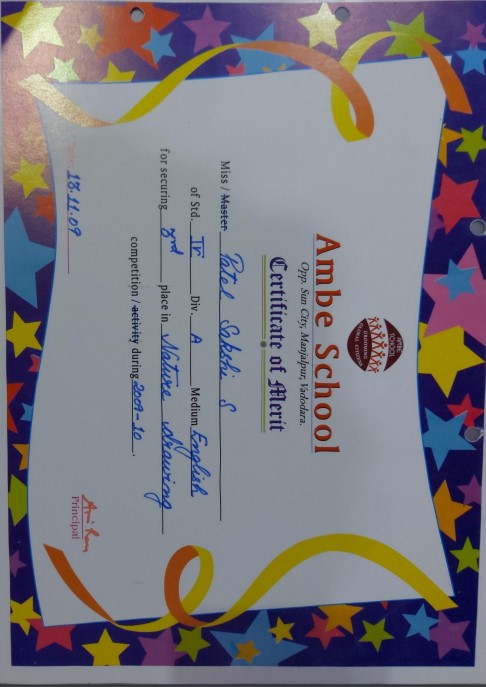 AMBE SCHOOL
Ambe School
Opp. Sun City, Manjalpur, Vadodara.
Certificate of Merit
Miss / Master Patel Sakshi S
of Std. IV Div. A Medium English
for securing 3rd place in Nature drawing
competition / activity during 2009-10.
13.11.09
Principal